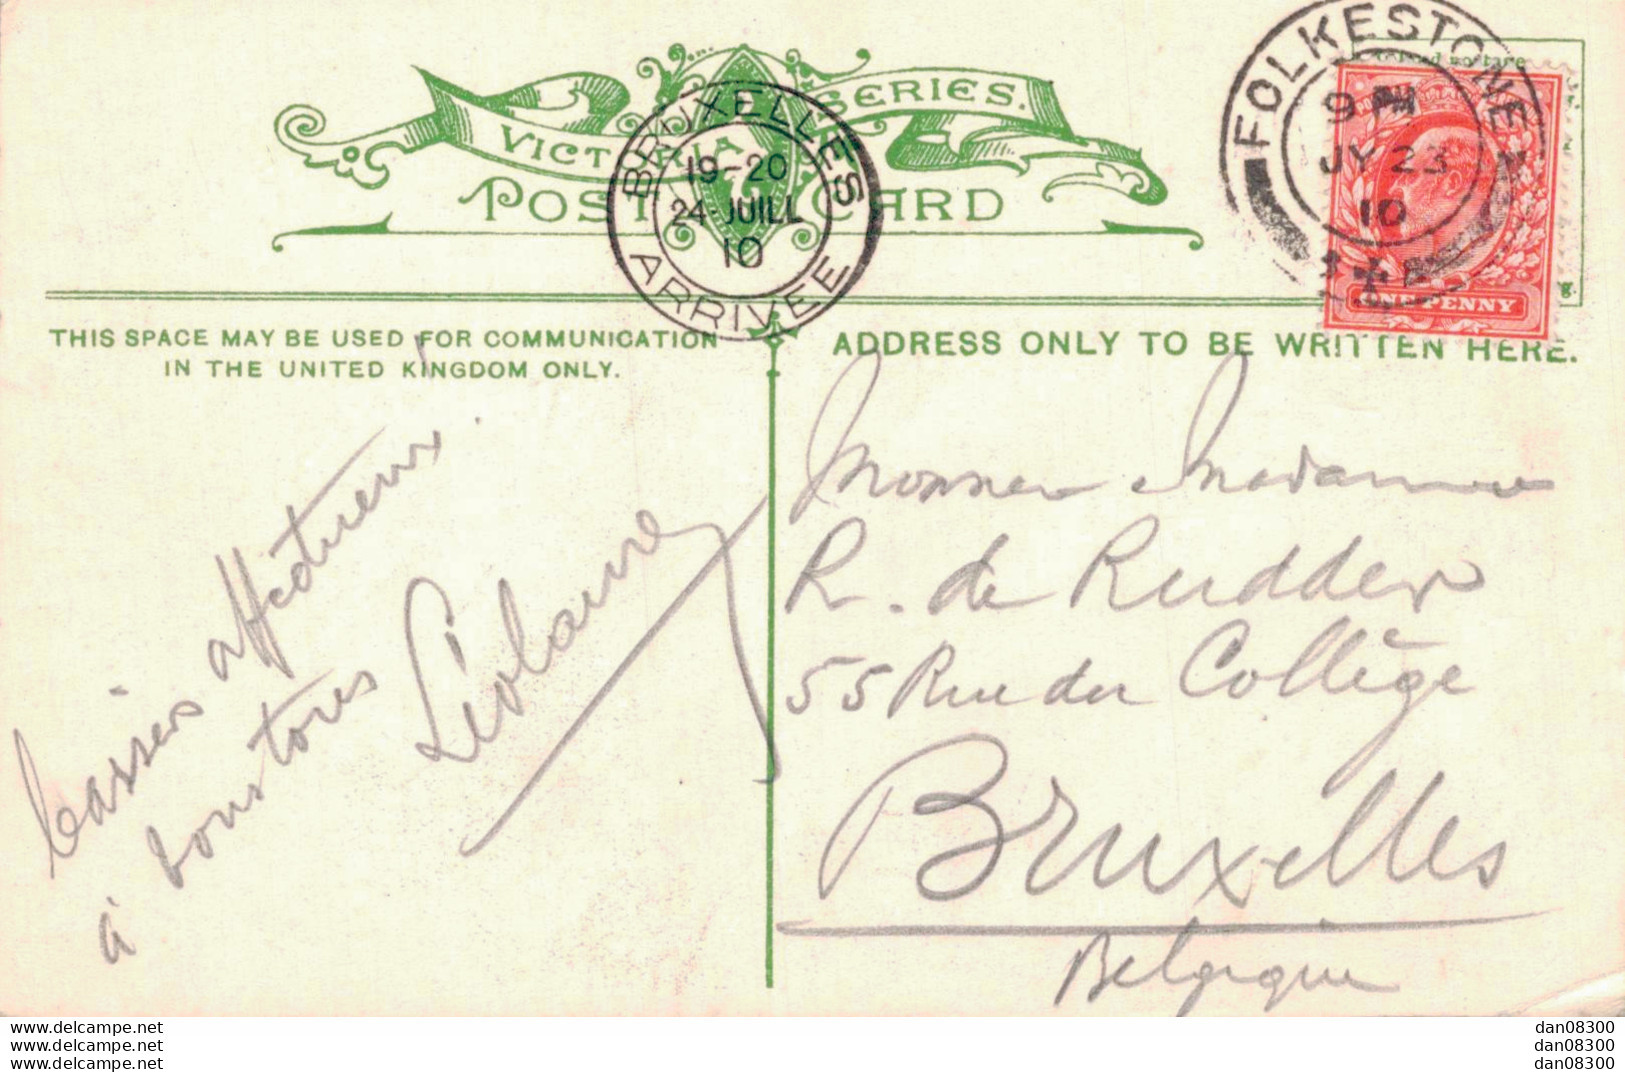 VICTORIA SERIES.
POST CARD
BRUXELLES
19-20
24 JUILL
10
ARRIVEE
FOLKESTONE
9 PM
JY 23
10
ONE PENNY
THIS SPACE MAY BE USED FOR COMMUNICATION
IN THE UNITED KINGDOM ONLY.
ADDRESS ONLY TO BE WRITTEN HERE.
affectueux
à tous
Madame
R. de Rudder
55 Rue du Collège
Bruxelles
Belgique
www.delcampe.net
www.delcampe.net
www.delcampe.net
dan08300
dan08300
dan08300